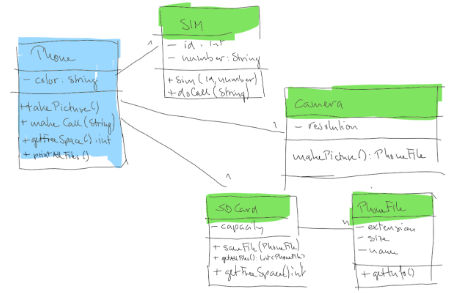 Phone
- color: String
+ takePicture()
+ make Call (String)
+ getFree Space(): int
+ printAllFiles()
1
SIM
- id: int
- number: String
+ sim (id, number)
+ doCall (String)
1
Camera
- resolution
makePicture(): PhoneFile
1
SDCard
- capacity
+ saveFile (PhoneFile)
+ getFreeSpace() int
n
PhoneFile
- extension
- size
- name
+ getInfo()